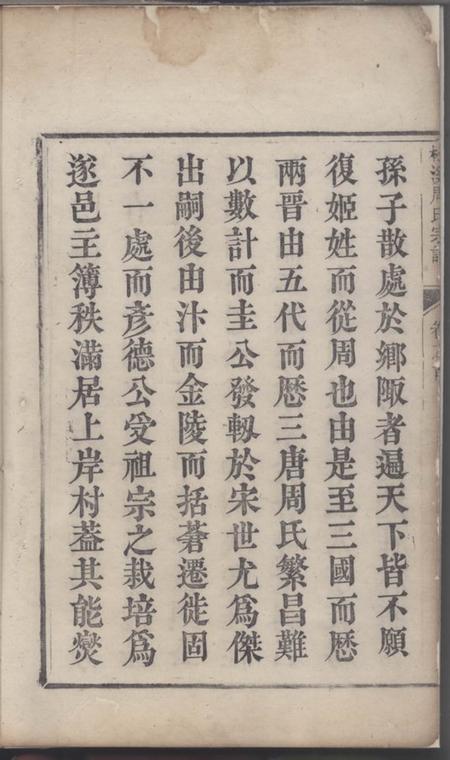 孫子散處於鄉陬者遍天下皆不願
復姬姓而從周也由是至三國而歷
兩晋由五代而歷三唐周氏繁昌難
以數計而圭公發軔於宋世尤爲傑
出嗣後由汴而金陵而括蒼遷徙固
不一處而彥德公受祖宗之栽培爲
遂邑主簿秩滿居上岸村葢其能爕